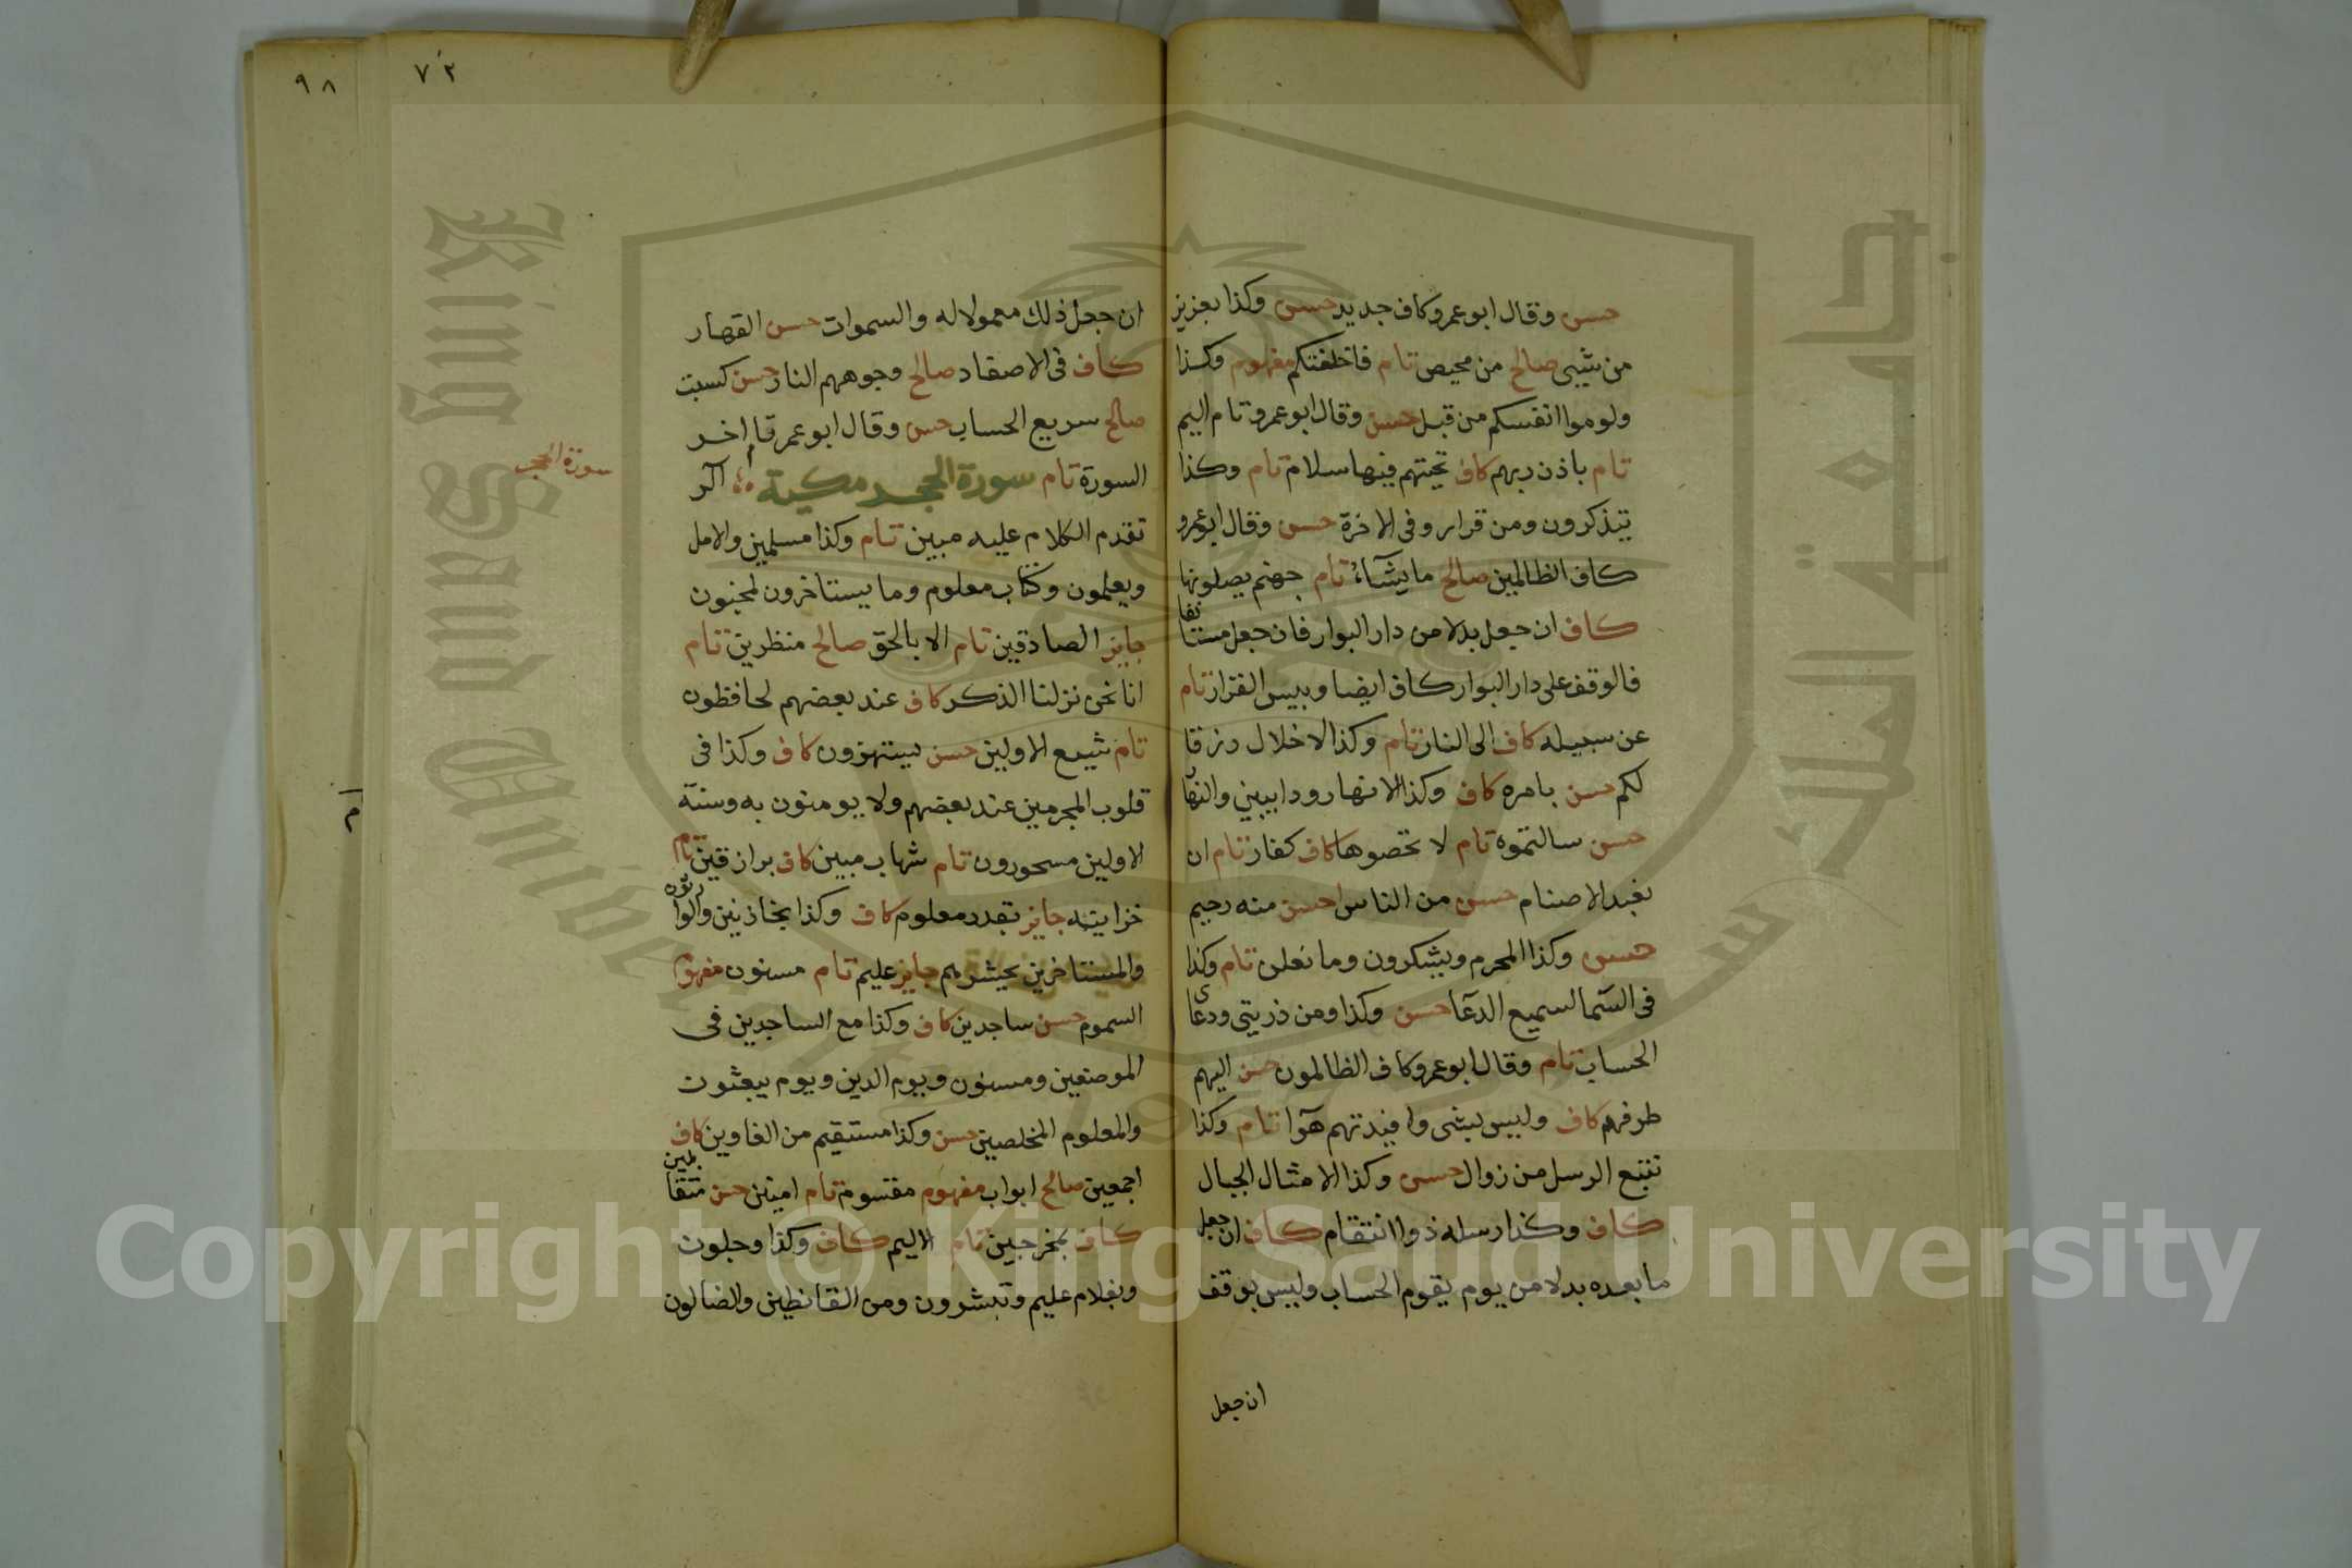 حسن وقال ابو عمرو كاف جديد حسن وكذا بعزيز
من شيى صالح من محيص تام فاخلفتكم مفهوم وكذا
ولوموا انفسكم من قبل حسن وقال ابو عمرو تام اليم
تام باذن ربهم كاف تحيتهم فيها سلام تام وكذا
يتذكرون ومن قرار وفى الاخرة حسن وقال ابو عمرو
كاف الظالمين صالح ما يشآء تام جهنم يصلونها
كاف ان جعل بدلا من دار البوار فان جعل مستانفا
فالوقف على دار البوار كاف ايضا وبيس القرار تام
عن سبيله كاف الى النار تام وكذا لا خلال رزقا
لكم حسن بامره كاف وكذا الانهار ودايبيني والنهار
حسن سالتموه تام لا تحصوها كاف كفار تام ان
نعبد الاصنام حسن من الناس احسن منه رحيم
حسن وكذا المحرم ويشكرون وما نعلن تام وكذا
فى السما لسميع الدعا حسن وكذا ومن ذريتى ودعاى
الحساب تام وقال ابو عمرو كاف الظالمون حسن اليهم
طرفهم كاف وليس بشى وافيدتهم هوآ تام وكذا
نتبع الرسل من زوال حسن وكذا الامثال الجبال
كاف وكذا رسله ذوا انتقام كاف ان جعل
ما بعده بدلا من يوم يقوم الحساب وليس بوقف
ان جعل
٧٢
٩٨
ان جعل ذلك معمولا له والسموات حسن القهار
كاف فى الاصفاد صالح وجوههم النار حسن كسبت
صالح سريع الحساب حسن وقال ابو عمر تام اخر
السورة تام سورة الحجر مكية الر
سورة الحجر
تقدم الكلام عليه مبين تام وكذا مسلمين والامل
ويعلمون وكتاب معلوم وما يستاخرون لمجنون
جايز الصادقين تام الا بالحق صالح منظرين تام
انا نحن نزلنا الذكر كاف عند بعضهم لحافظون
تام شيع الاولين حسن يستهزون كاف وكذا فى
قلوب المجرمين عند بعضهم ولا يومنون به وسنة
الاولين مسحورون تام شهاب مبين كاف برازقين تام
خزاينه جايز بقدر معلوم كاف وكذا بخازنين والوارثون
والمستاخرين يحشرهم جايز عليم تام مسنون مفهوم
السموم حسن ساجدين كاف وكذا مع الساجدين فى
الموضعين ومسنون ويوم الدين ويوم يبعثون
والمعلوم المخلصين حسن وكذا مستقيم من الغاوين كاف
اجمعين صالح ابواب مفهوم مقسوم تام امنين حسن متقابلين
كاف بمخرجين تام الاليم كاف وكذا وجلون
وبغلام عليم وتبشرون ومن القانطين والضالون
Copyright © King Saud University
King Saud Unive
جامعة الملك س